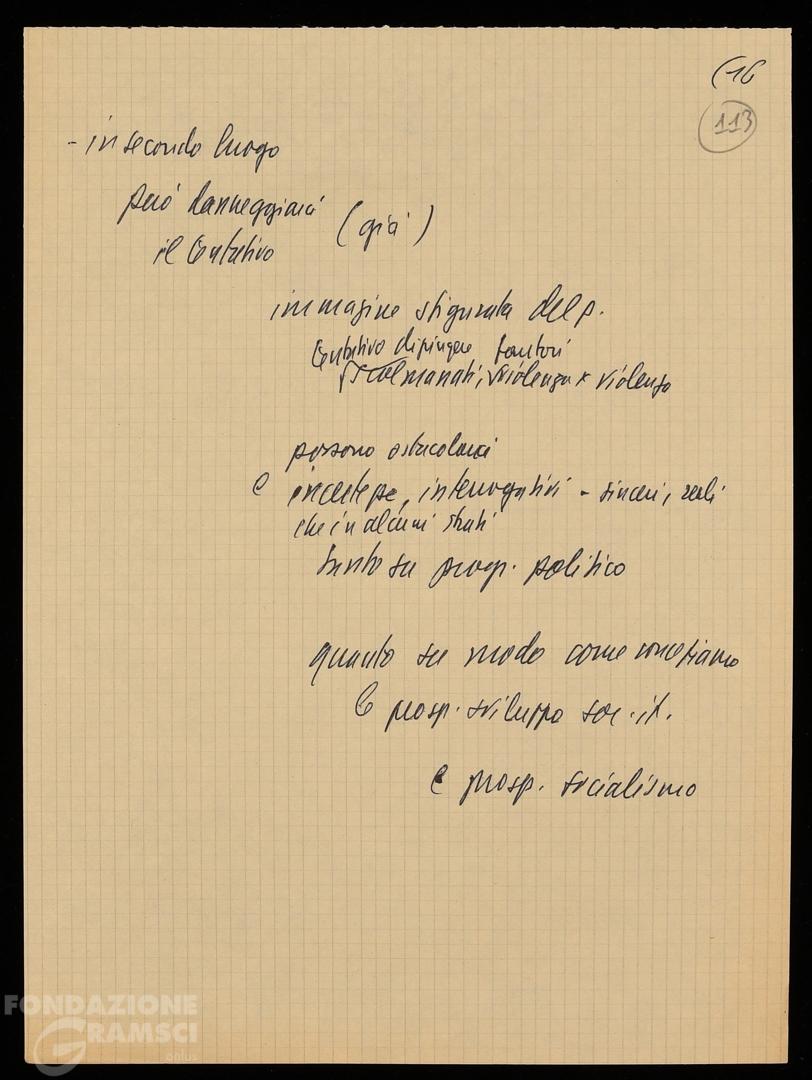 (16
113
- in secondo luogo
può danneggiarci (già)
il tentativo
immagine sfigurata del p.
tentativo dipingere fautori
scalmanati, violenza x violenza
possono ostacolarci
e incertezze, interrogativi - sinceri, reali
che in alcuni strati
tanto su prosp. politico
quanto su modo come concepiamo
le prosp. sviluppo soc. it.
e prosp. socialismo
FONDAZIONE
GRAMSCI
onlus